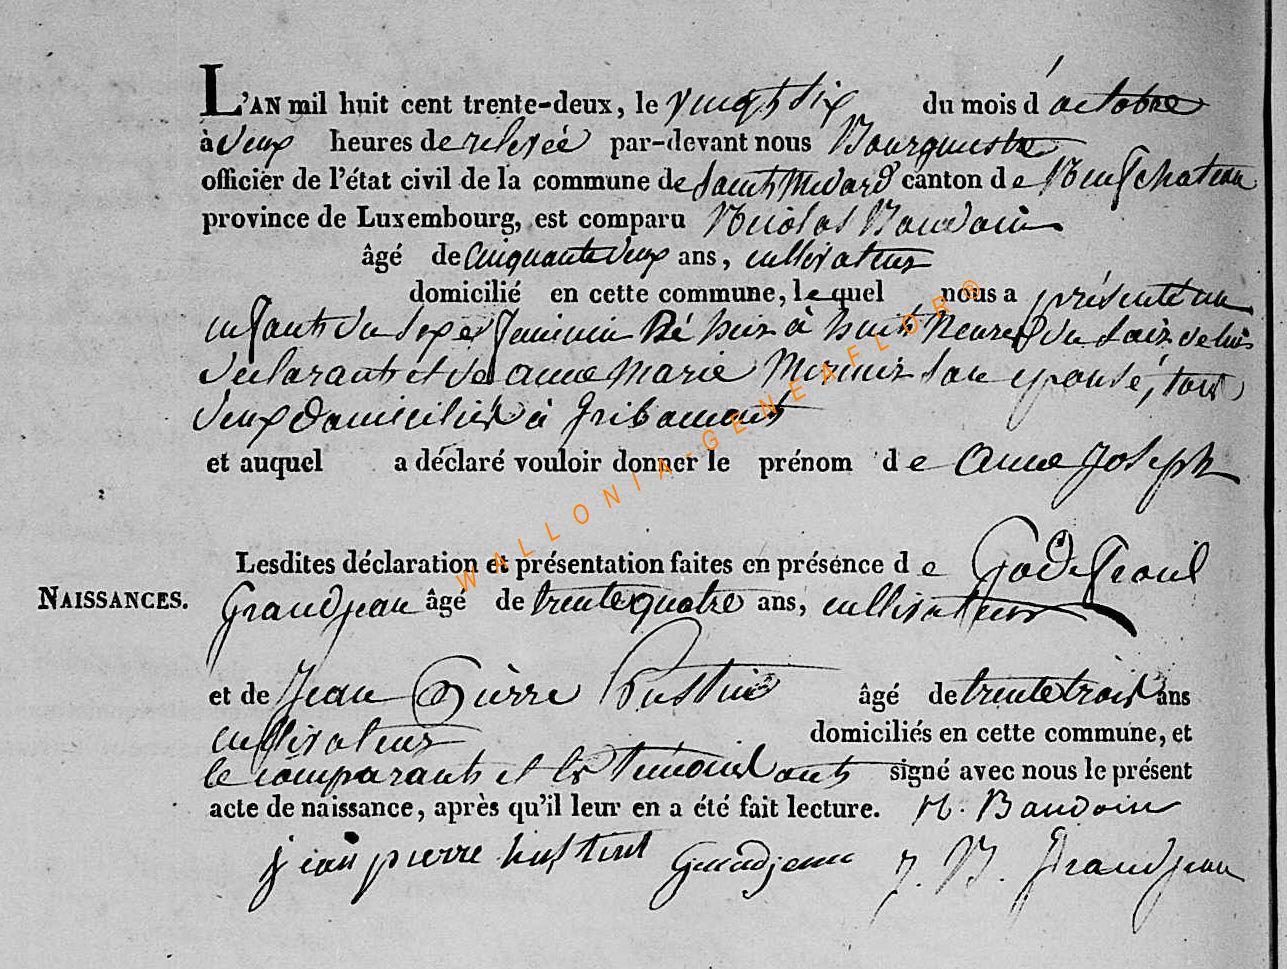 L'AN mil huit cent trente-deux, le vingt six du mois d'octobre
à deux heures de relevée par-devant nous Bourguestre
officier de l'état civil de la commune de Saint Médard canton de Neufchateau
province de Luxembourg, est comparu Nicolas Baudoin
âgé de cinquante deux ans, cultivateur
domicilié en cette commune, lequel nous a présenté un
enfant du sexe feminin né hier à huit heures du soir de lui
declarant et de anne Marie son epouse, tous
deux domiciliés à Gribamont
et auquel a déclaré vouloir donner le prénom de anne Joseph
Lesdites déclaration et présentation faites en présence de
NAISSANCES.
Grandjean âgé de trente quatre ans, cultivateur
et de Jean Pierre âgé de trente trois ans
cultivateur domiciliés en cette commune, et
le comparant et les témoins ont signé avec nous le présent
acte de naissance, après qu'il leur en a été fait lecture. N. Baudoin
jean pierre Grandjean J. B. Grandjean
WALLONIA-GENEAFLOR©